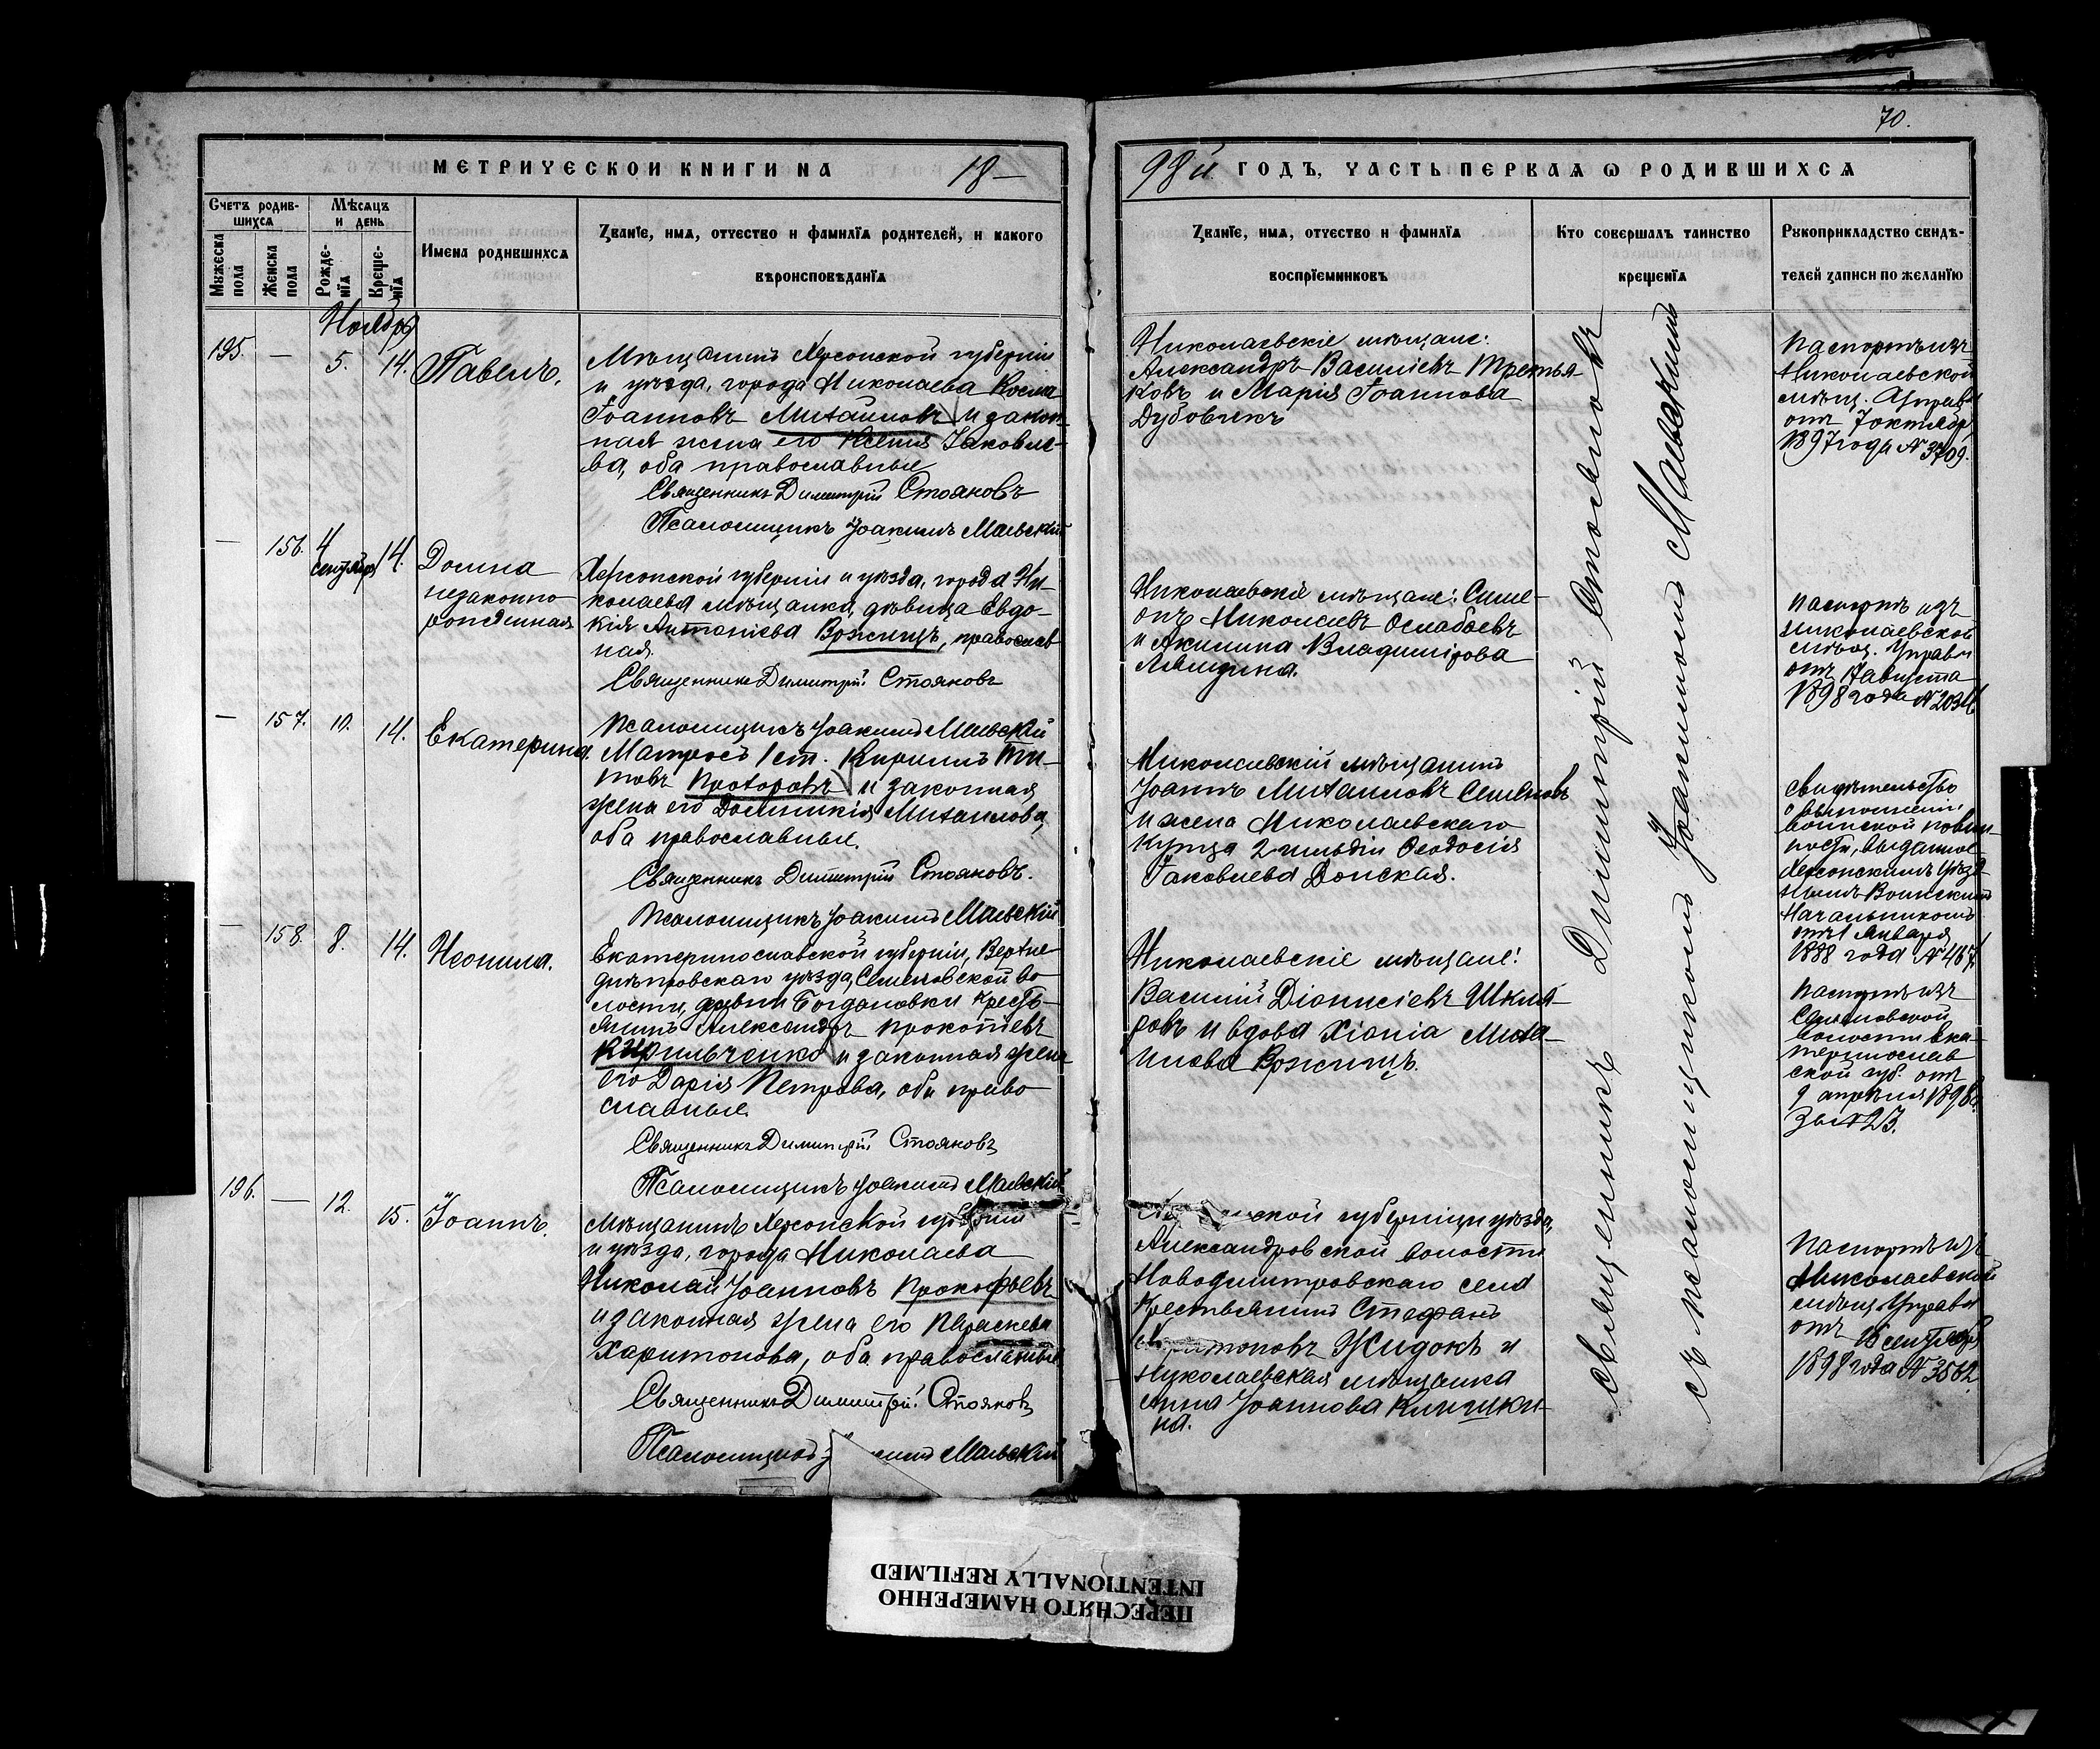 70.
МЕТРИЧЕСКОЙ КНИГИ НА 18—
98й ГОДЪ, ЧАСТЬ ПЕРВАЯ Ѡ РОДИВШИХСЯ
Счетъ родив-
шихся
Мужеска
пола
Женска
пола
Мѣсяцъ
и день
Рожде-
нїя
Креще-
нїя
Имена родившихся
Званїе, имя, отчество и фамилїя родителей, и какого
вѣроисповѣданїя
Званїе, имя, отчество и фамилїя
воспрїемниковъ
Кто совершалъ таинство
крещенїя
Рукоприкладство свидѣ-
телей записи по желанїю
Ноябрь
195. — 5. 14. Павелъ.
Мѣщанинъ Херсонской губерніи
и уѣзда, города Николаева Косма
Іоанновъ Михайловъ и закон-
ная жена его Ксенія Іаковле-
ва, оба православные
Священникъ Димитрій Стояновъ
Псаломщикъ Іоакимъ Маевскій
Николаевскіе мѣщане:
Александръ Василіевъ Третья-
ковъ и Марія Іоаннова
Дубовикъ
Паспортъ изъ
Николаевской
мѣщ. Управы
отъ 7 октября
1897 года № 3709.
— 156. 4
сентября 14. Домна
незаконно
рожденная
Херсонской губерніи и уѣзда, города Ни-
колаева мѣщанка, дѣвица Евдо-
кія Антоніева Вржищъ, православ
ная.
Священникъ Димитрій Стояновъ
Псаломщикъ Іоакимъ Маевскій
Николаевскіе мѣщане: Симе-
онъ Николаевъ Ослабаевъ
и Акилина Владимірова
Лямзина.
Паспортъ изъ
Николаевской
мѣщ. Управы
отъ 17 августа
1898 года №
— 157. 10. 14. Екатерина.
Матросъ 1 ст. Кириллъ Ти-
товъ Прохоровъ и законная
жена его Домникія Михаилова,
оба православные.
Священникъ Димитрій Стояновъ.
Псаломщикъ Іоакимъ Маевскій
Николаевскій мѣщанинъ
Іоаннъ Михаиловъ Семеновъ
и жена Николаевскаго
купца 2 гильдіи Ѳеодосія
Іаковлева Донская.
Свидѣтельство
о выполненіи
воинской повин
ности, выданное
Херсонскимъ Уѣзд-
нымъ Воинскимъ
Начальникомъ
отъ 1 Января
1888 года № 467
— 158. 8. 14. Неонила.
Екатеринославской губерніи, Верхне-
днѣпровскаго уѣзда, Семеновской во-
лости, дервни Богдановки кресть-
янинъ Александръ Прокопіевъ
Кирильченко и законная жена
его Дарія Петрова, оба право
славные.
Священникъ Димитрій Стояновъ
Псаломщикъ Іоакимъ Маевскій
Николаевскіе мѣщане:
Василій Діонисіевъ Шкля-
ровъ и вдова Хіонія Миха-
илова Вржищъ.
Паспортъ изъ
Семеновской
волости Ека-
теринослав
ской губ. отъ
9 апрѣля 1898 г.
за № 23.
196. — 12. 15. Іоаннъ.
Мѣщанинъ Херсонской губерніи
и уѣзда, города Николаева
Николай Іоанновъ Прокофьевъ
и законная жена его Параскева
Харитонова, оба православные
Священникъ Димитрій Стояновъ
Псаломщикъ Маевскій
губерніи и уѣзда,
Александровской волости
Новодмитровскаго села
крестьянинъ Стефанъ
Харитоновъ Жидокъ и
Николаевская мѣщанка
Анна Іоаннова Клишки-
на.
Паспортъ изъ
Николаевской
мѣщ. Управы
отъ 15 сентября
1898 года № 3562
Священникъ Димитрій Стояновъ
съ псаломщикомъ Іоакимомъ Маевскимъ
ПЕРЕСНЯТО НАМЕРЕННО
INTENTIONALLY REFILMED